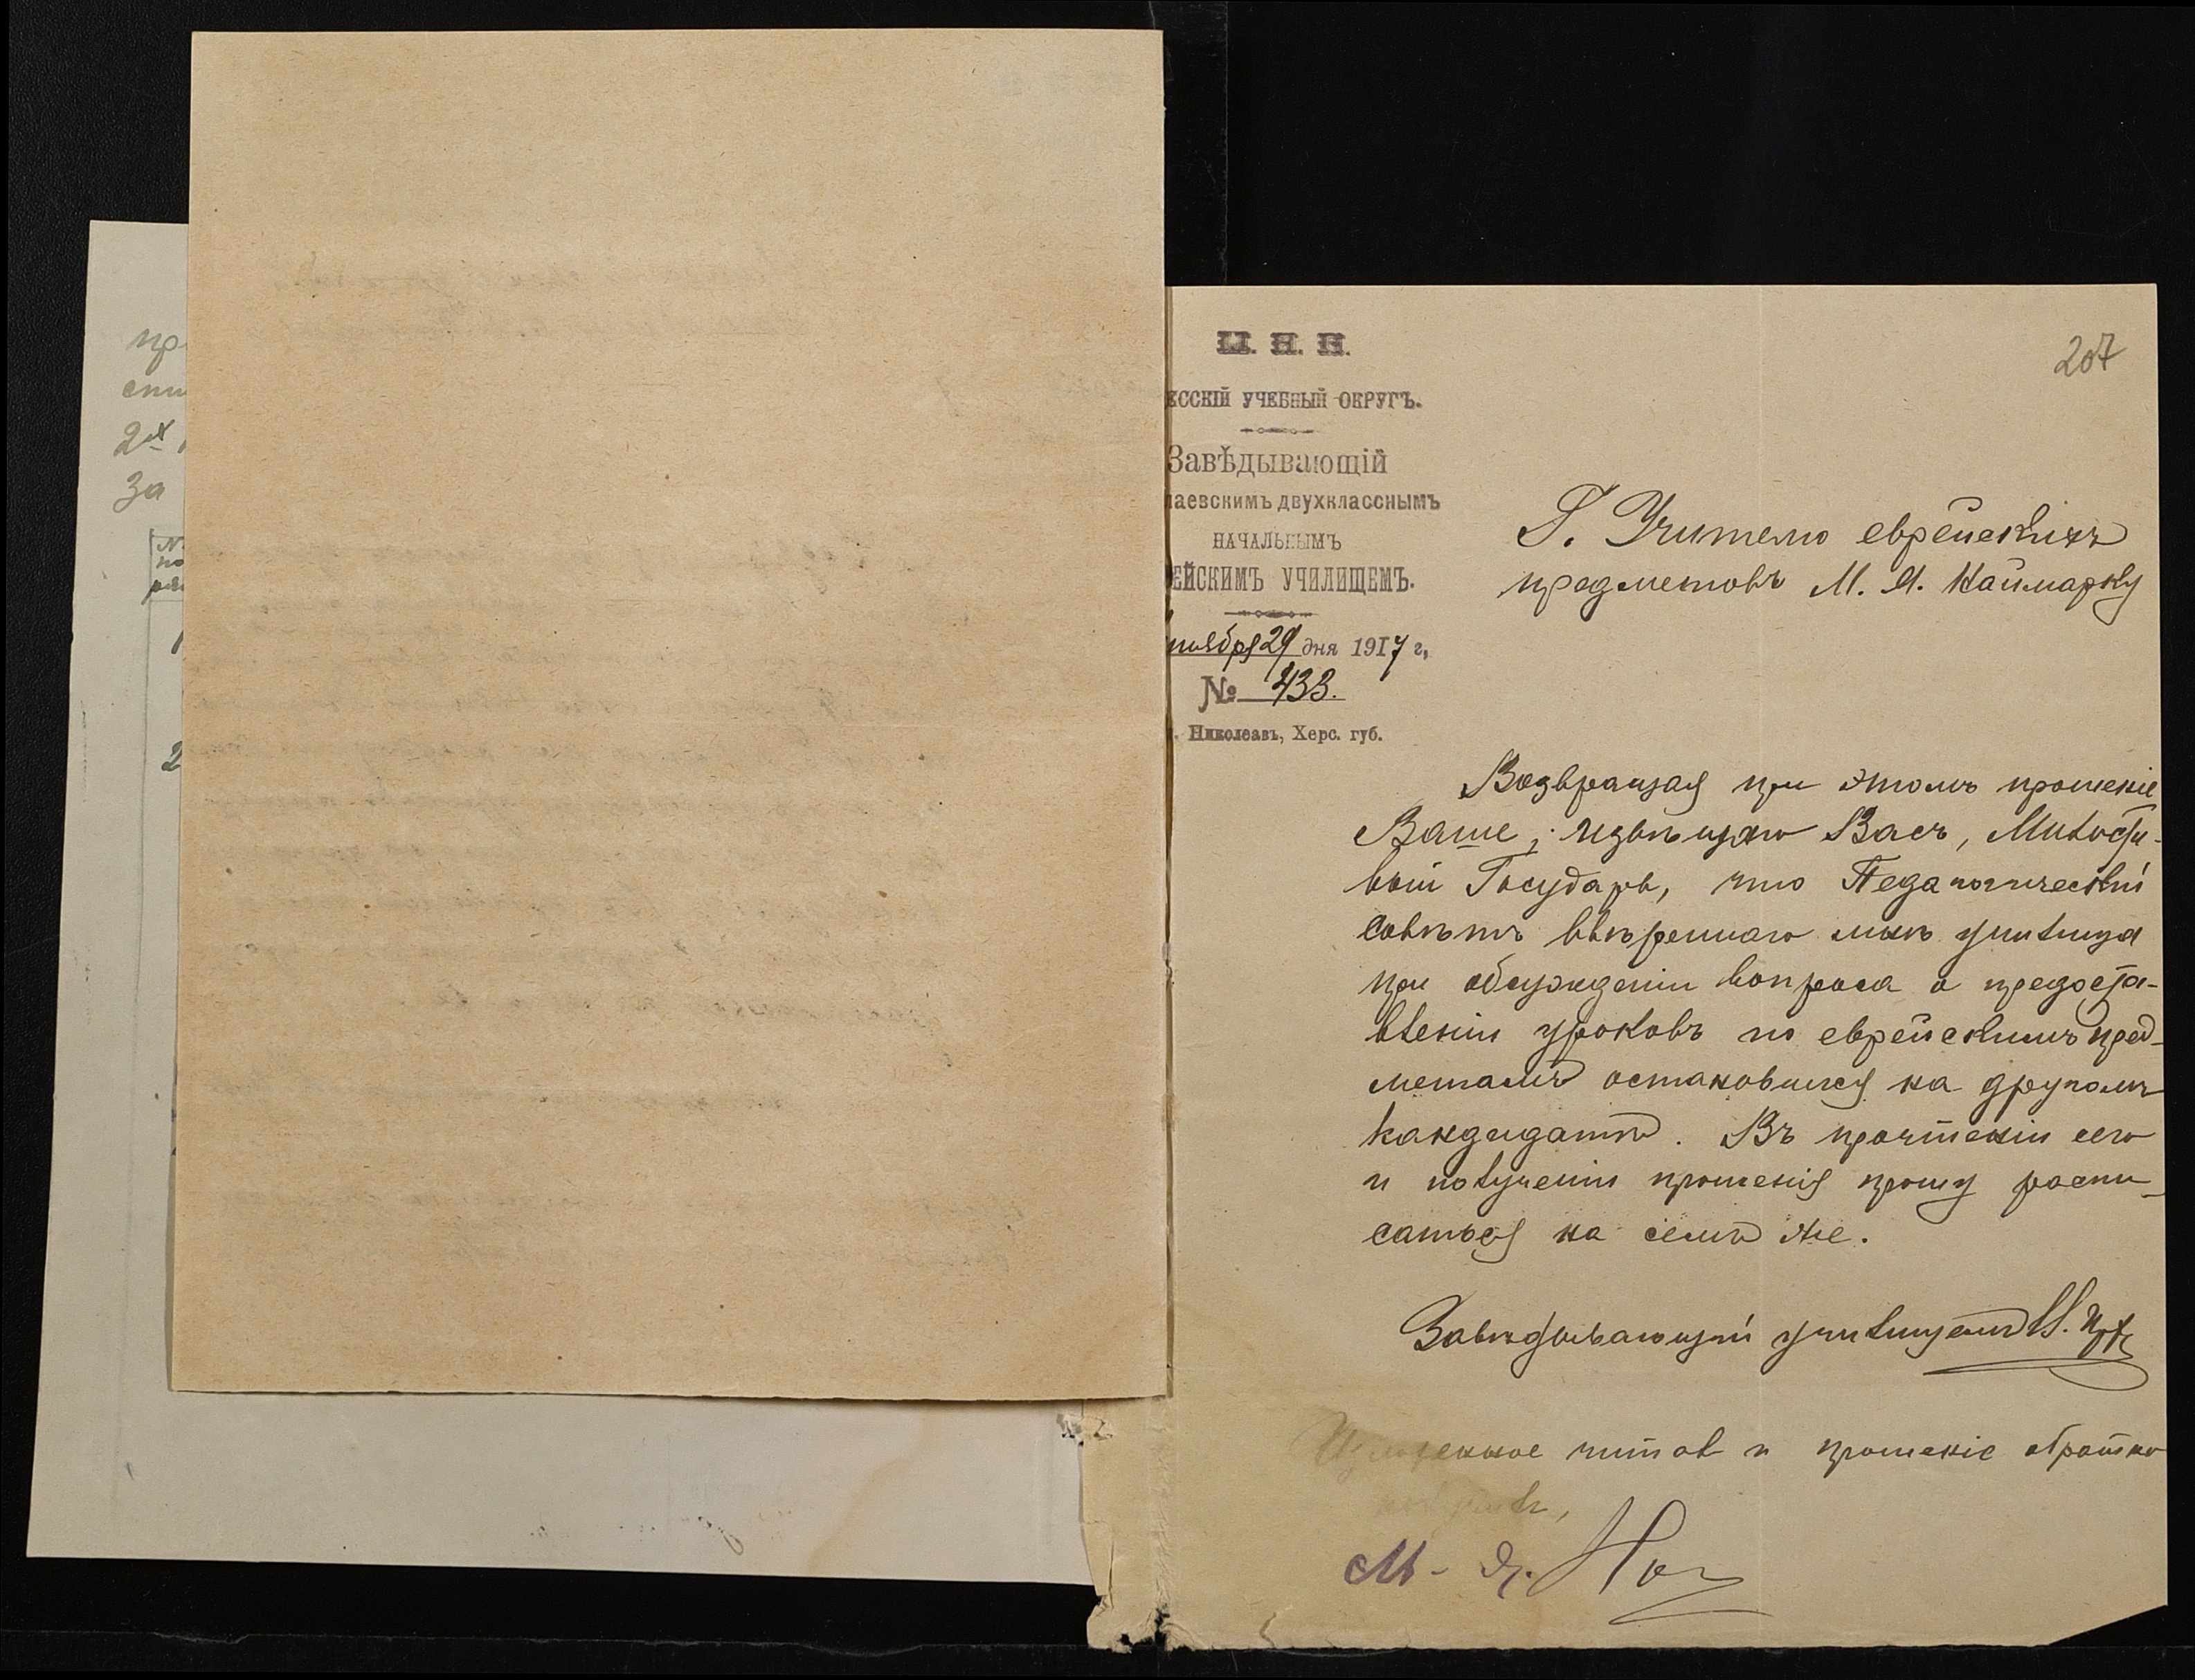 пр
спи
2х
за
№
по
1
2
207
М. Н. П.
ЕССКІЙ УЧЕБНЫЙ ОКРУГЪ.
Завѣдывающій
лаевскимъ двухкласснымъ
НАЧАЛЬНЫМЪ
ЕЙСКИМЪ УЧИЛИЩЕМЪ.
ноября 29 дня 1917 г,
№ 433.
. Николаевъ, Херс. губ.
Г. Учителю еврейскихъ
предметовъ М. Я. Наймарку
Возвращая при этомъ прошеніе
Ваше, извѣщаю Васъ, Милости-
вый Государь, что Педагогическій
Совѣтъ ввѣреннаго мнѣ училища
при обсужденіи вопроса о предоста-
вленіи уроковъ по еврейскимъ пред-
метамъ остановился на другомъ
кандидатѣ. Въ прочтеніи сего
и полученіи прошенія прошу распи-
саться на семъ же.
Завѣдывающій училищемъ
Изложенное читалъ и прошеніе обратно
получилъ,
М. Я. Най